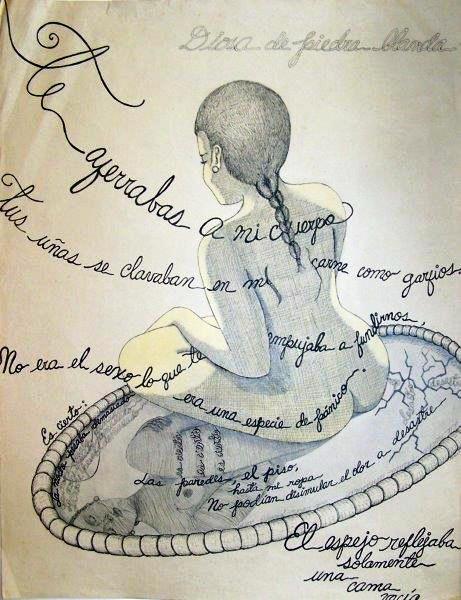 Diosa de piedra blanda
Te
aferrabas a mi cuerpo
tus uñas se clavaban en mi carne como garfios.
No era el sexo lo que te empujaba a fundirnos,
era una especie de pánico.
Es cierto:
es cierto
es cierto
es cierto
Las paredes, el piso,
hasta mi ropa
No podían disimular el olor a desastre
El espejo reflejaba
solamente
una
cama
vacía